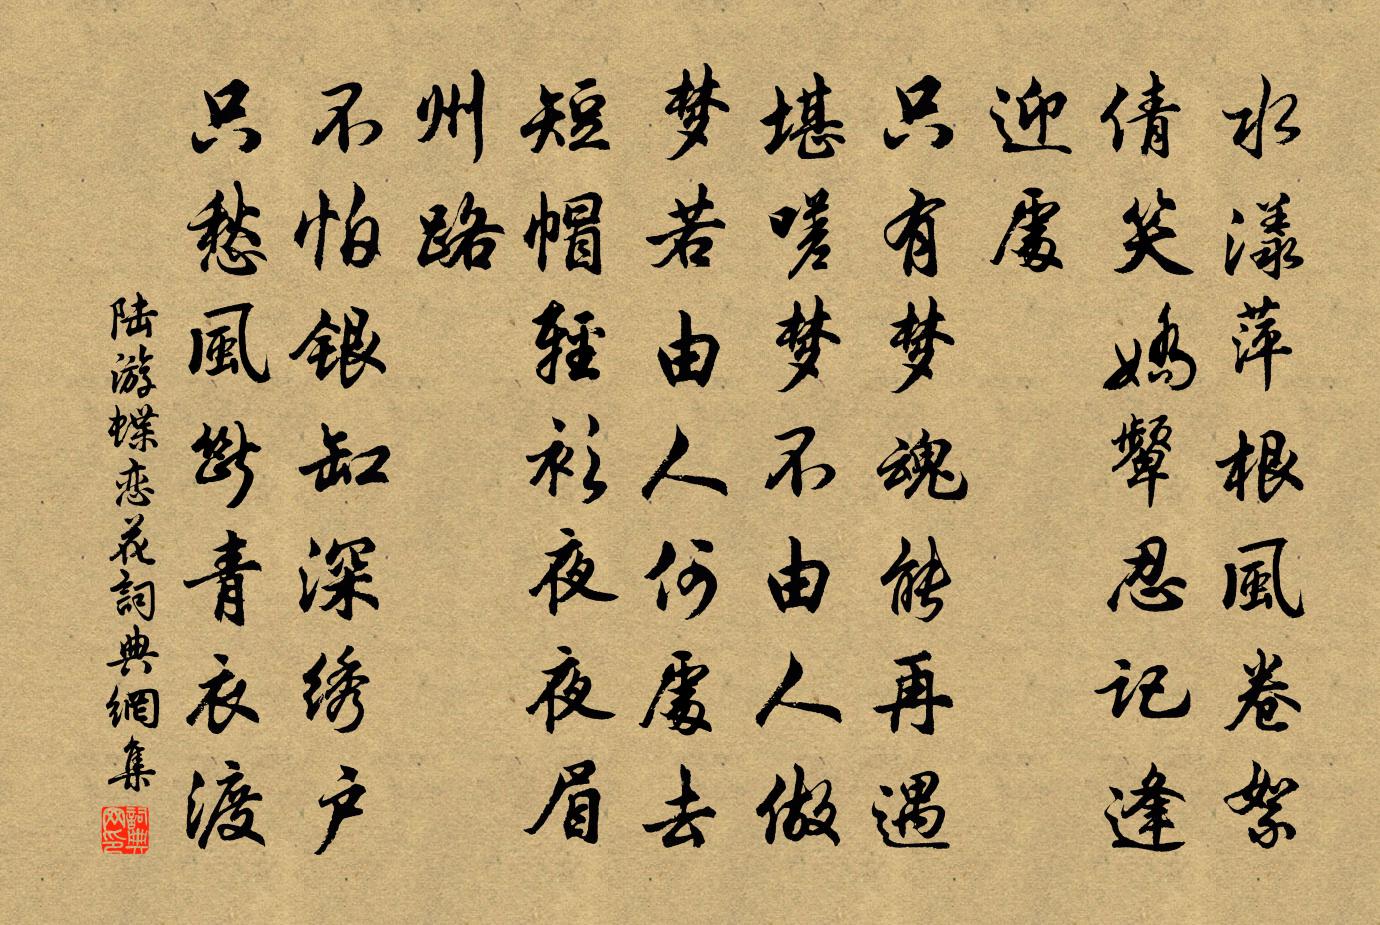 水漾萍根風卷絮
倩笑嬌顰忍记逢
迎處
只有梦魂能再遇
堪嗟梦不由人做
梦若由人何處去
短帽輕衫夜夜眉
州路
不怕银缸深绣户
只愁風斷青衣渡
陆游蝶恋花詞典網集
詞典
网印